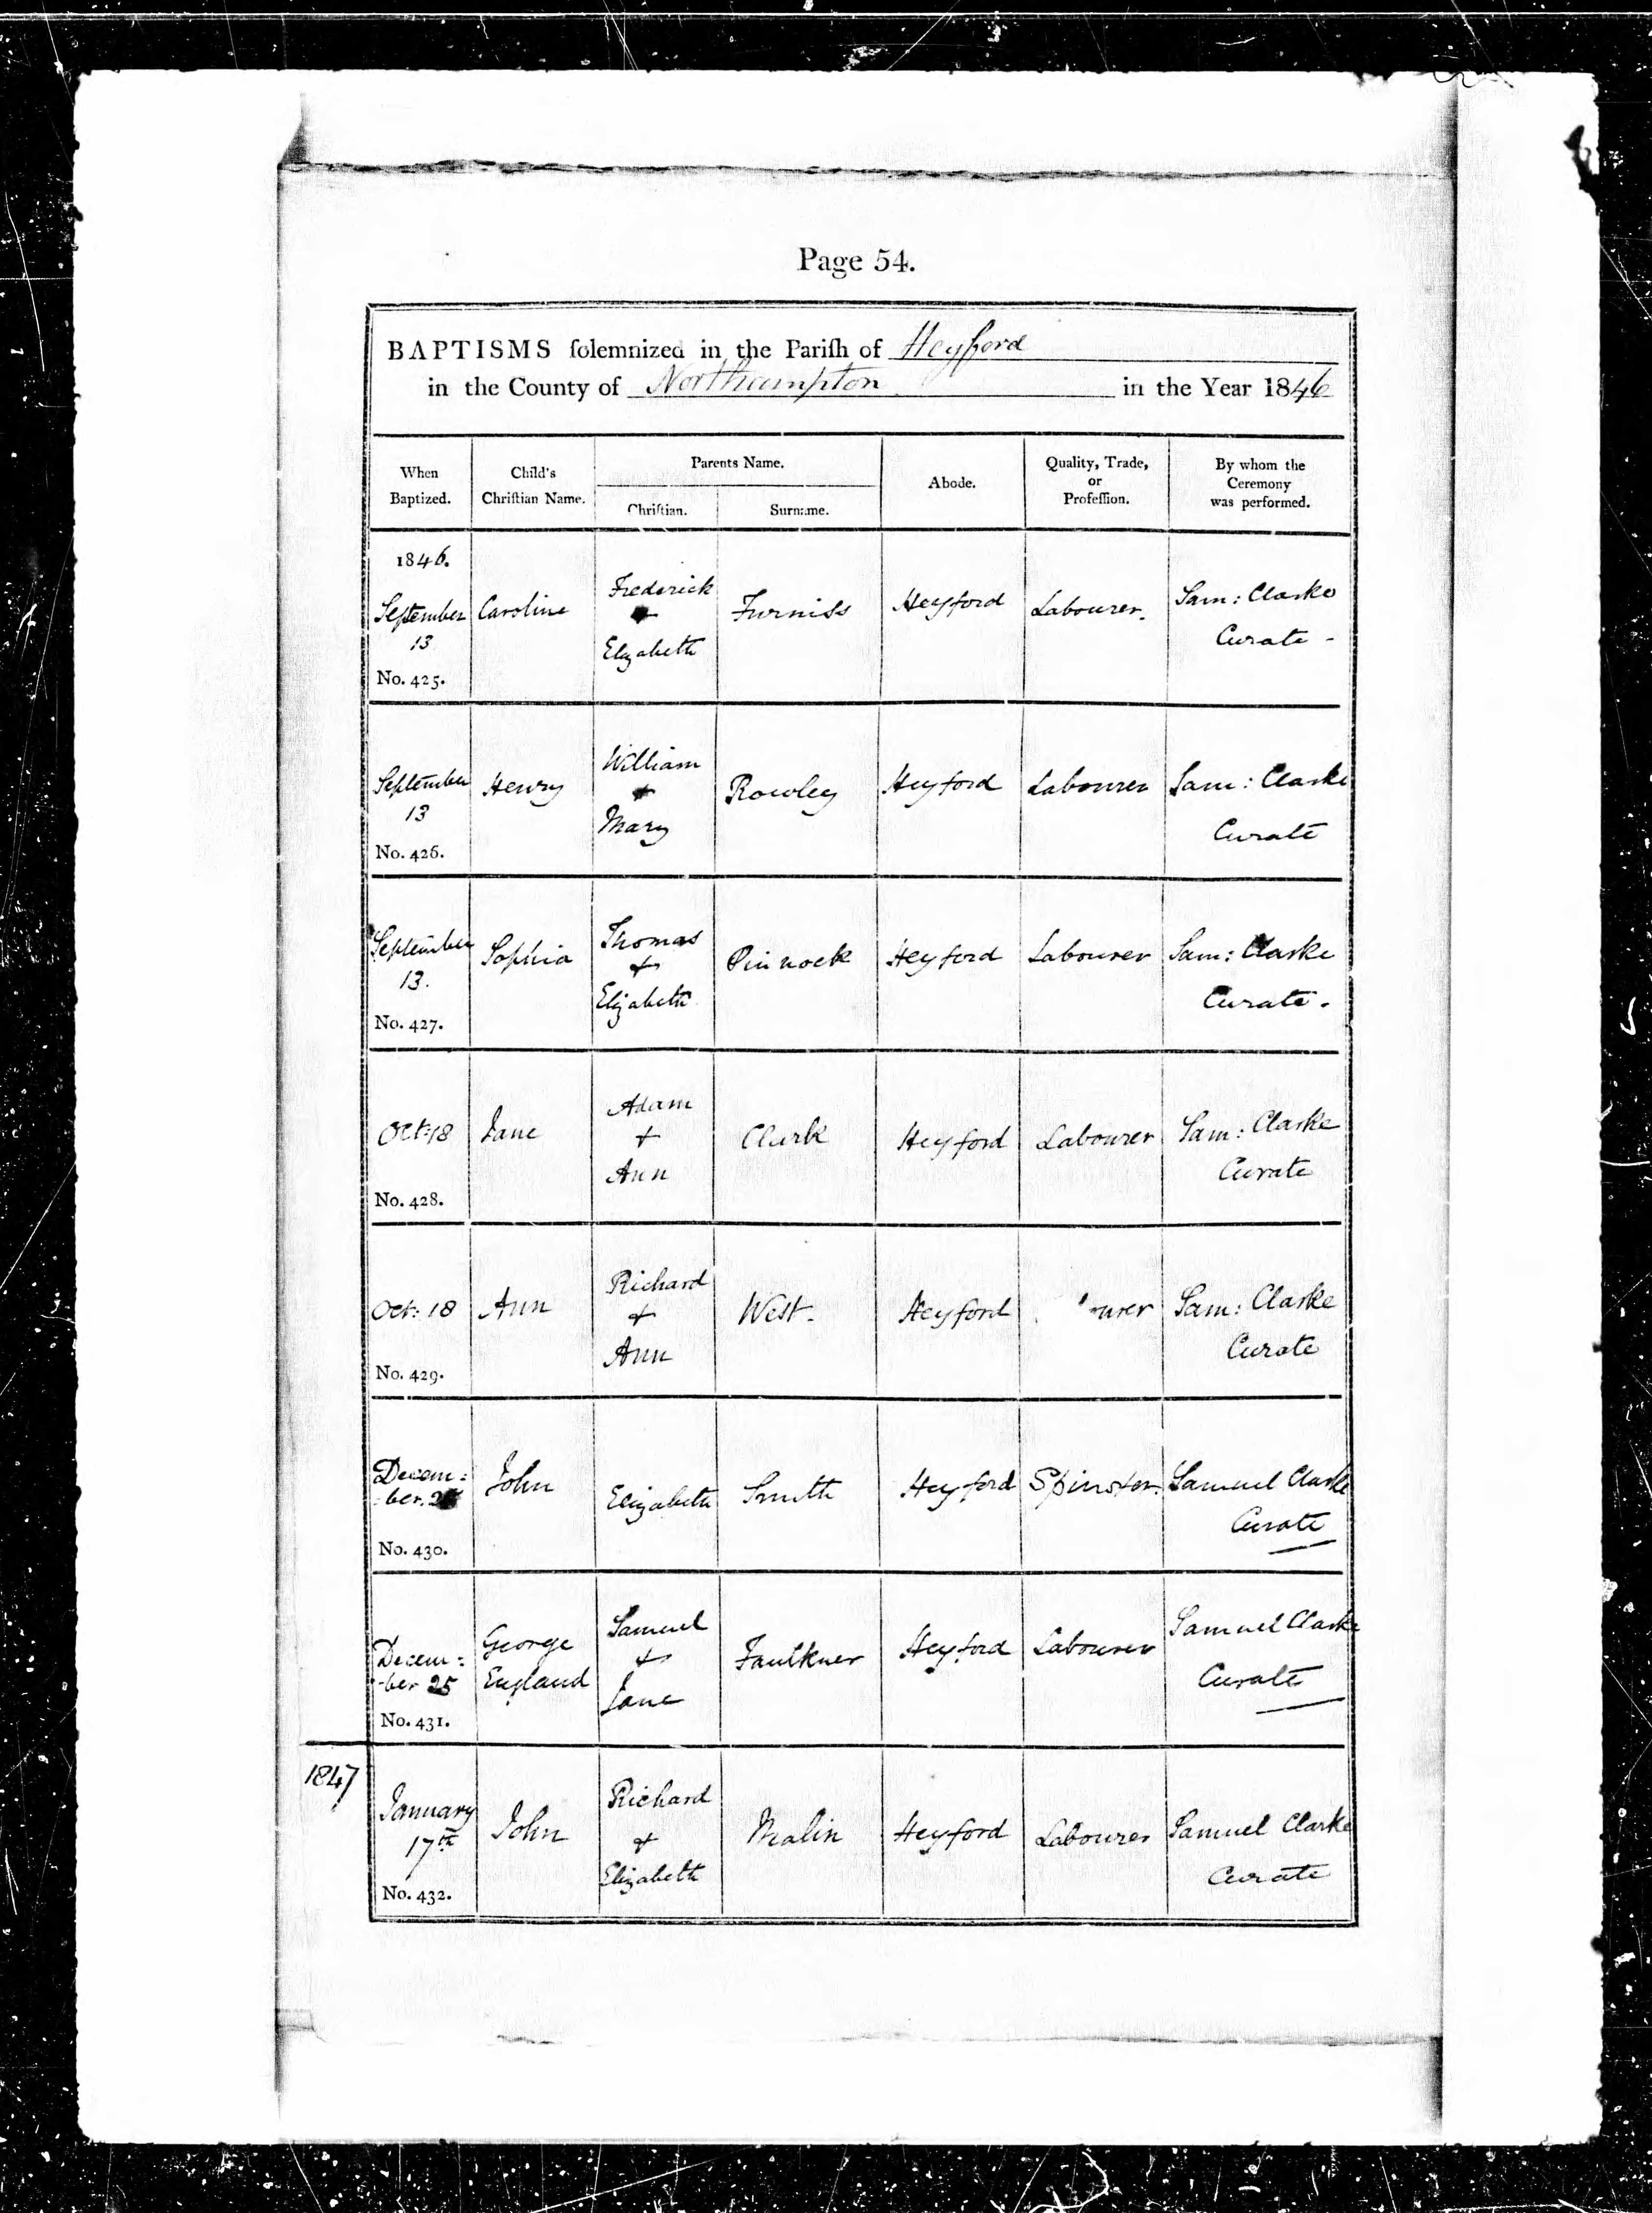 Page 54.
BAPTISMS ſolemnized in the Pariſh of Heyford
in the County of Northampton in the Year 1846
When Baptized. Child's Chriſtian Name. Parents Name. Chriſtian. Surname. Abode. Quality, Trade, or Profeſſion. By whom the Ceremony was performed.
1846.
September 13 Caroline Frederick + Elizabeth Furniss Heyford Labourer. Sam: Clarke Curate -
No. 425.
September 13 Henry William + Mary Rowley Heyford Labourer Sam: Clarke Curate
No. 426.
September 13. Sophia Thomas + Elizabeth Pinnock Heyford Labourer Sam: Clarke Curate.
No. 427.
Oct: 18 Jane Adam + Ann Clark Heyford Labourer Sam: Clarke Curate
No. 428.
Oct: 18 Ann Richard + Ann West. Heyford urer Sam: Clarke Curate
No. 429.
Decem: ber. John Elizabeth Smith Heyford Spinster. Samuel Clarke Curate
No. 430.
Decem: -ber 25 George England Samuel + Jane Faulkner Heyford Labourer Samuel Clarke Curate
No. 431.
1847
January 17th John Richard + Elizabeth Malin Heyford Labourer Samuel Clarke Curate
No. 432.